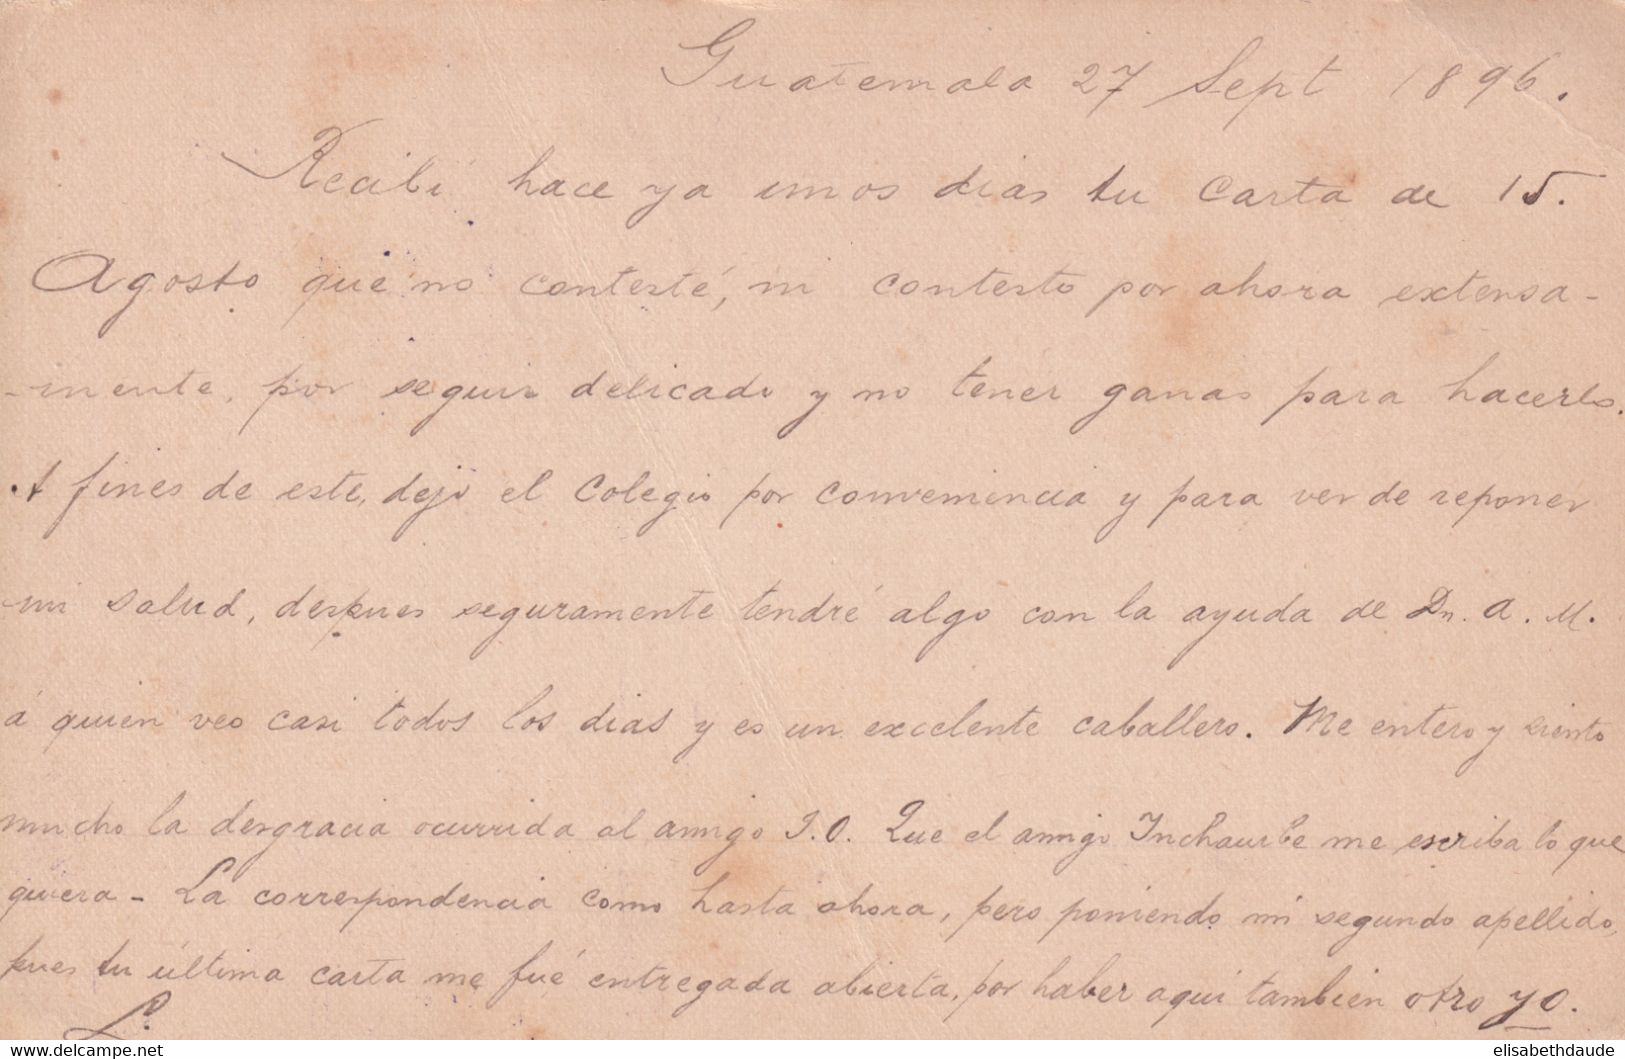 Guatemala 27 Sept 1896.
Recibí hace ya unos dias tu carta de 15.
Agosto que no contesté, ni contesto por ahora extensa-
-mente, por seguir delicado y no tener ganas para hacerlo.
A fines de este, dejo el Colegio por conveniencia y para ver de reponer
mi salud, despues seguramente tendré algo con la ayuda de Dn. A. M.
á quien veo casi todos los dias y es un excelente caballero. Me entero y siento
mucho la desgracia ocurrida al amigo J.O. Que el amigo Inchaurbe me escriba lo que
quiera - La correspondencia como hasta ahora, pero poniendo mi segundo apellido,
pues tu última carta me fué entregada abierta, por haber aquí tambien otro yo.
L.
elisabethdaude
www.delcampe.net